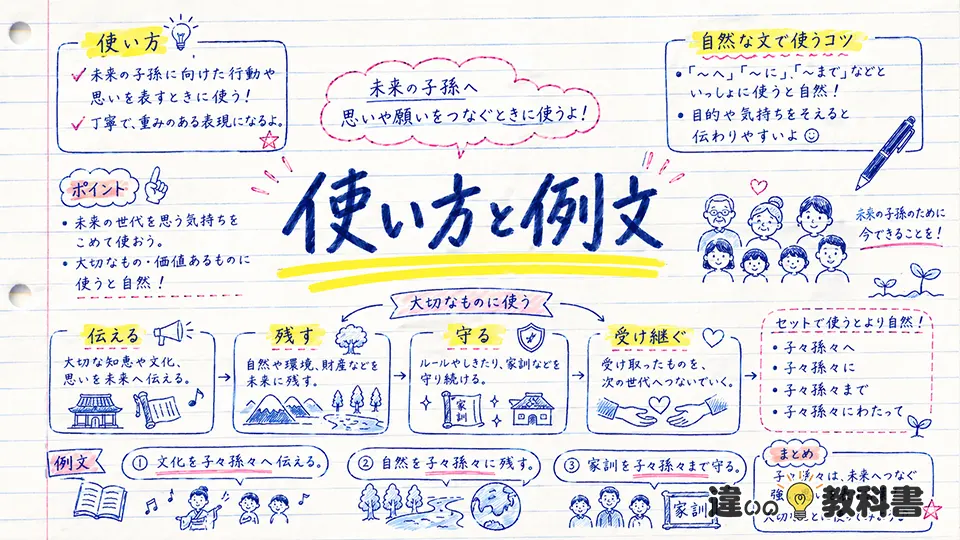 使い方
未来の子孫に向けた行動や
思いを表すときに使う！
丁寧で、重みのある表現になるよ。
未来の子孫へ
思いや願いをつなぐときに使うよ！
自然な文で使うコツ
・「～へ」「～に」、「～まで」などと
いっしょに使うと自然！
・目的や気持ちをそえると
伝わりやすいよ
ポイント
・未来の世代を思う気持ちを
こめて使おう。
・大切なもの・価値あるものに
使うと自然！
使い方と例文
未来の子孫のために
今できることを！
大切なものに使う
伝える
大切な知恵や文化、
思いを未来へ伝える。
残す
自然や環境、財産などを
未来に残す。
守る
ルールやしきたり、家訓などを
守り続ける。
家訓
受け継ぐ
受け取ったものを、
次の世代へつないでいく。
セットで使うとより自然！
・子々孫々へ
・子々孫々に
・子々孫々まで
・子々孫々にわたって
例文
① 文化を子々孫々へ伝える。
② 自然を子々孫々に残す。
③ 家訓を子々孫々まで守る。
家訓
まとめ
は、未来へつなぐ
違いの教科書